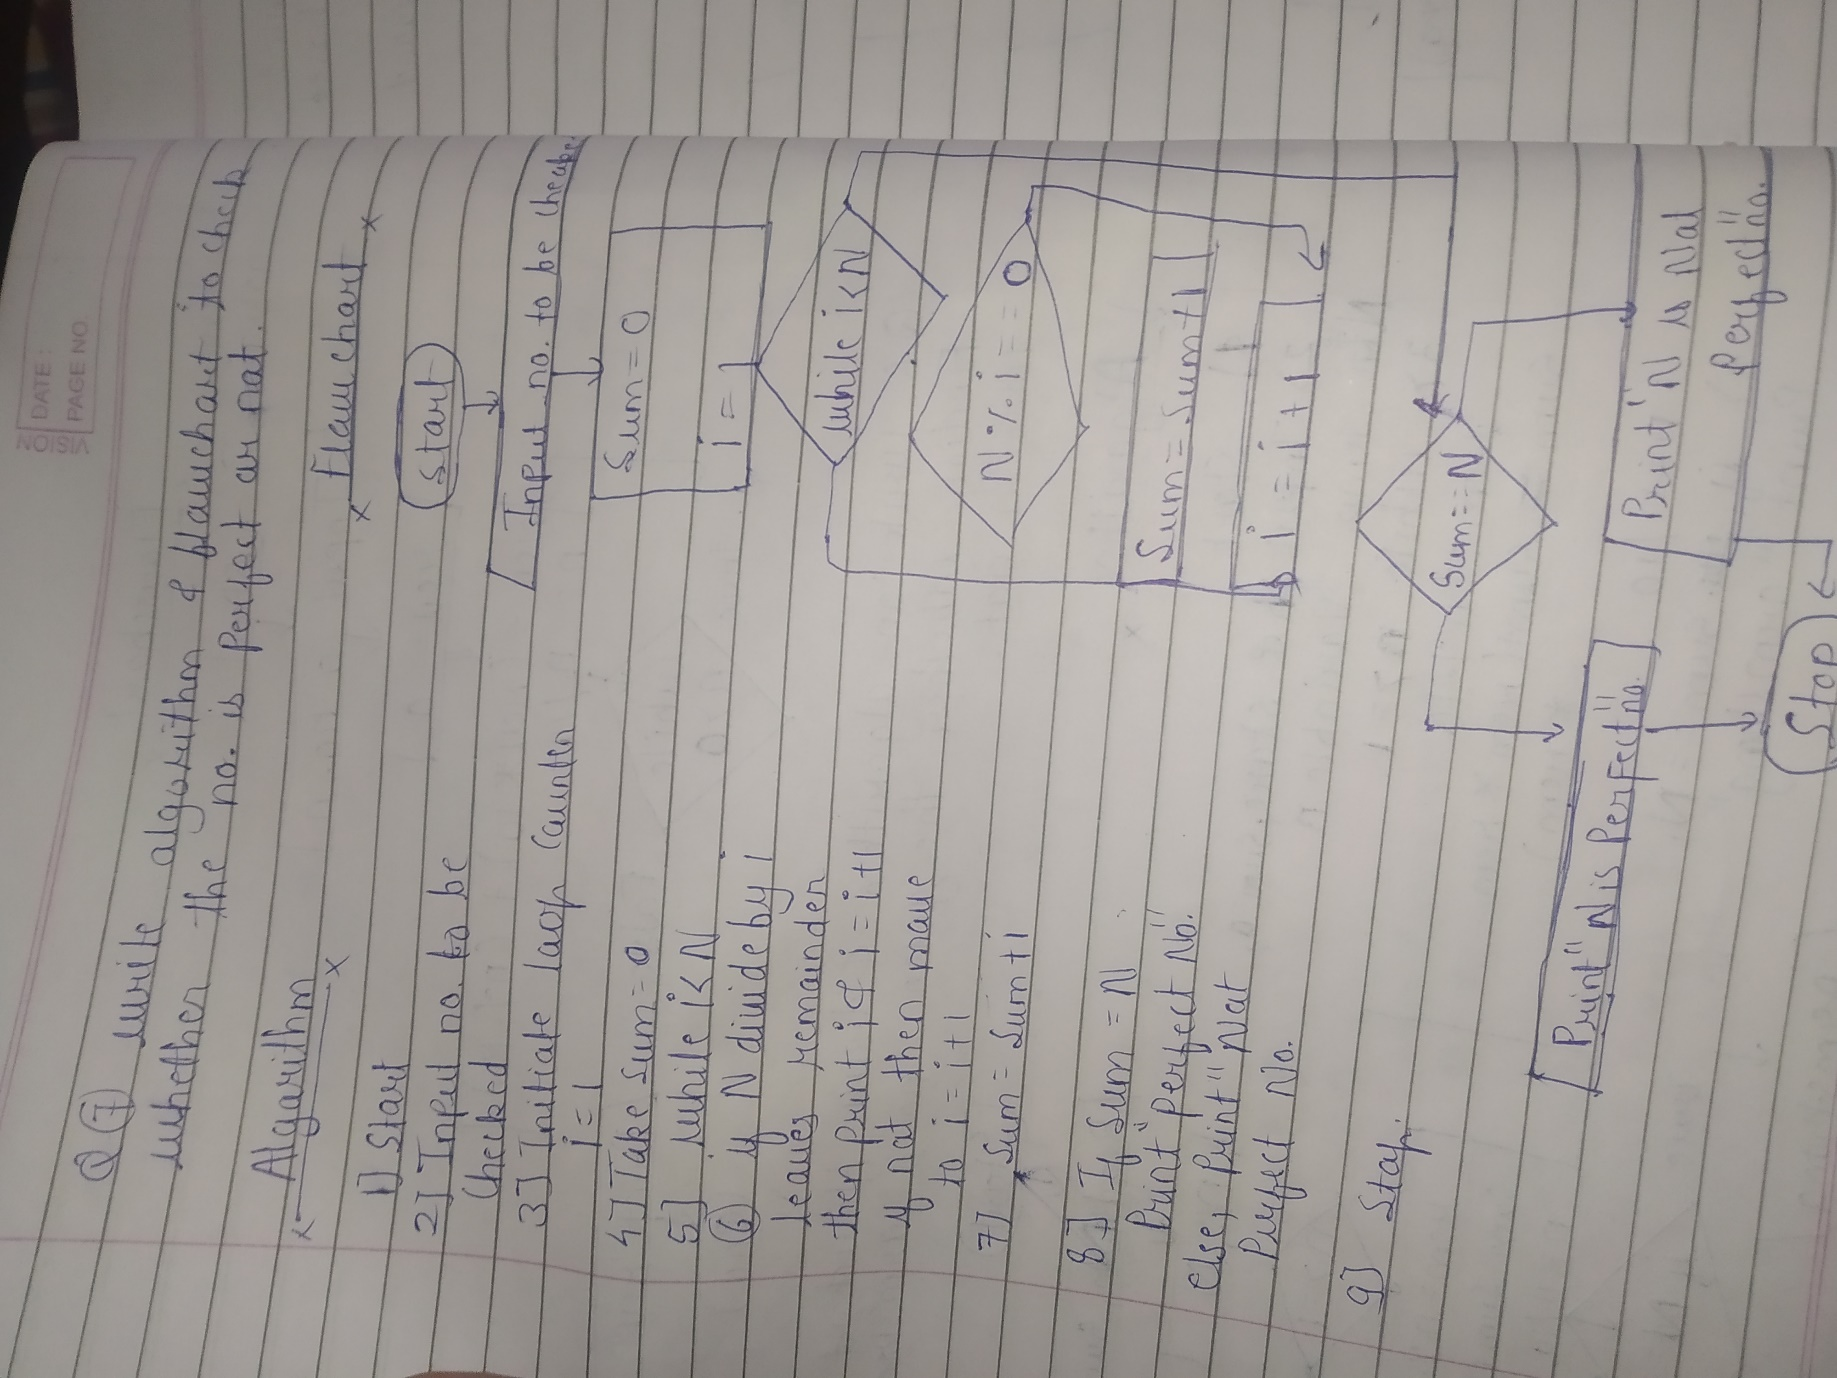 VISION
DATE:
PAGE NO
Q (7) write algorithm & flowchart to check
whether the no. is perfect or not.
Algorithm
1] Start
2] Input no. to be
Checked
3] Initiate loop counter
i = 1
4] Take sum = 0
5] while i < N
(6) if N divide by i
leaves remainder
then print i & i = i+1
if not then move
to i = i + 1
7] Sum = Sum + i
8] If Sum = N
Print "Perfect No."
else, print "Not
Perfect No.
9] Stop.
Flowchart
Start
Input no. to be checke
Sum = 0
i = 1
while i < N
N % i = = 0
Sum = Sum + 1
i = i + 1
Sum == N
Print "N is Not
Perfect" no.
Print "N is Perfect" no.
Stop